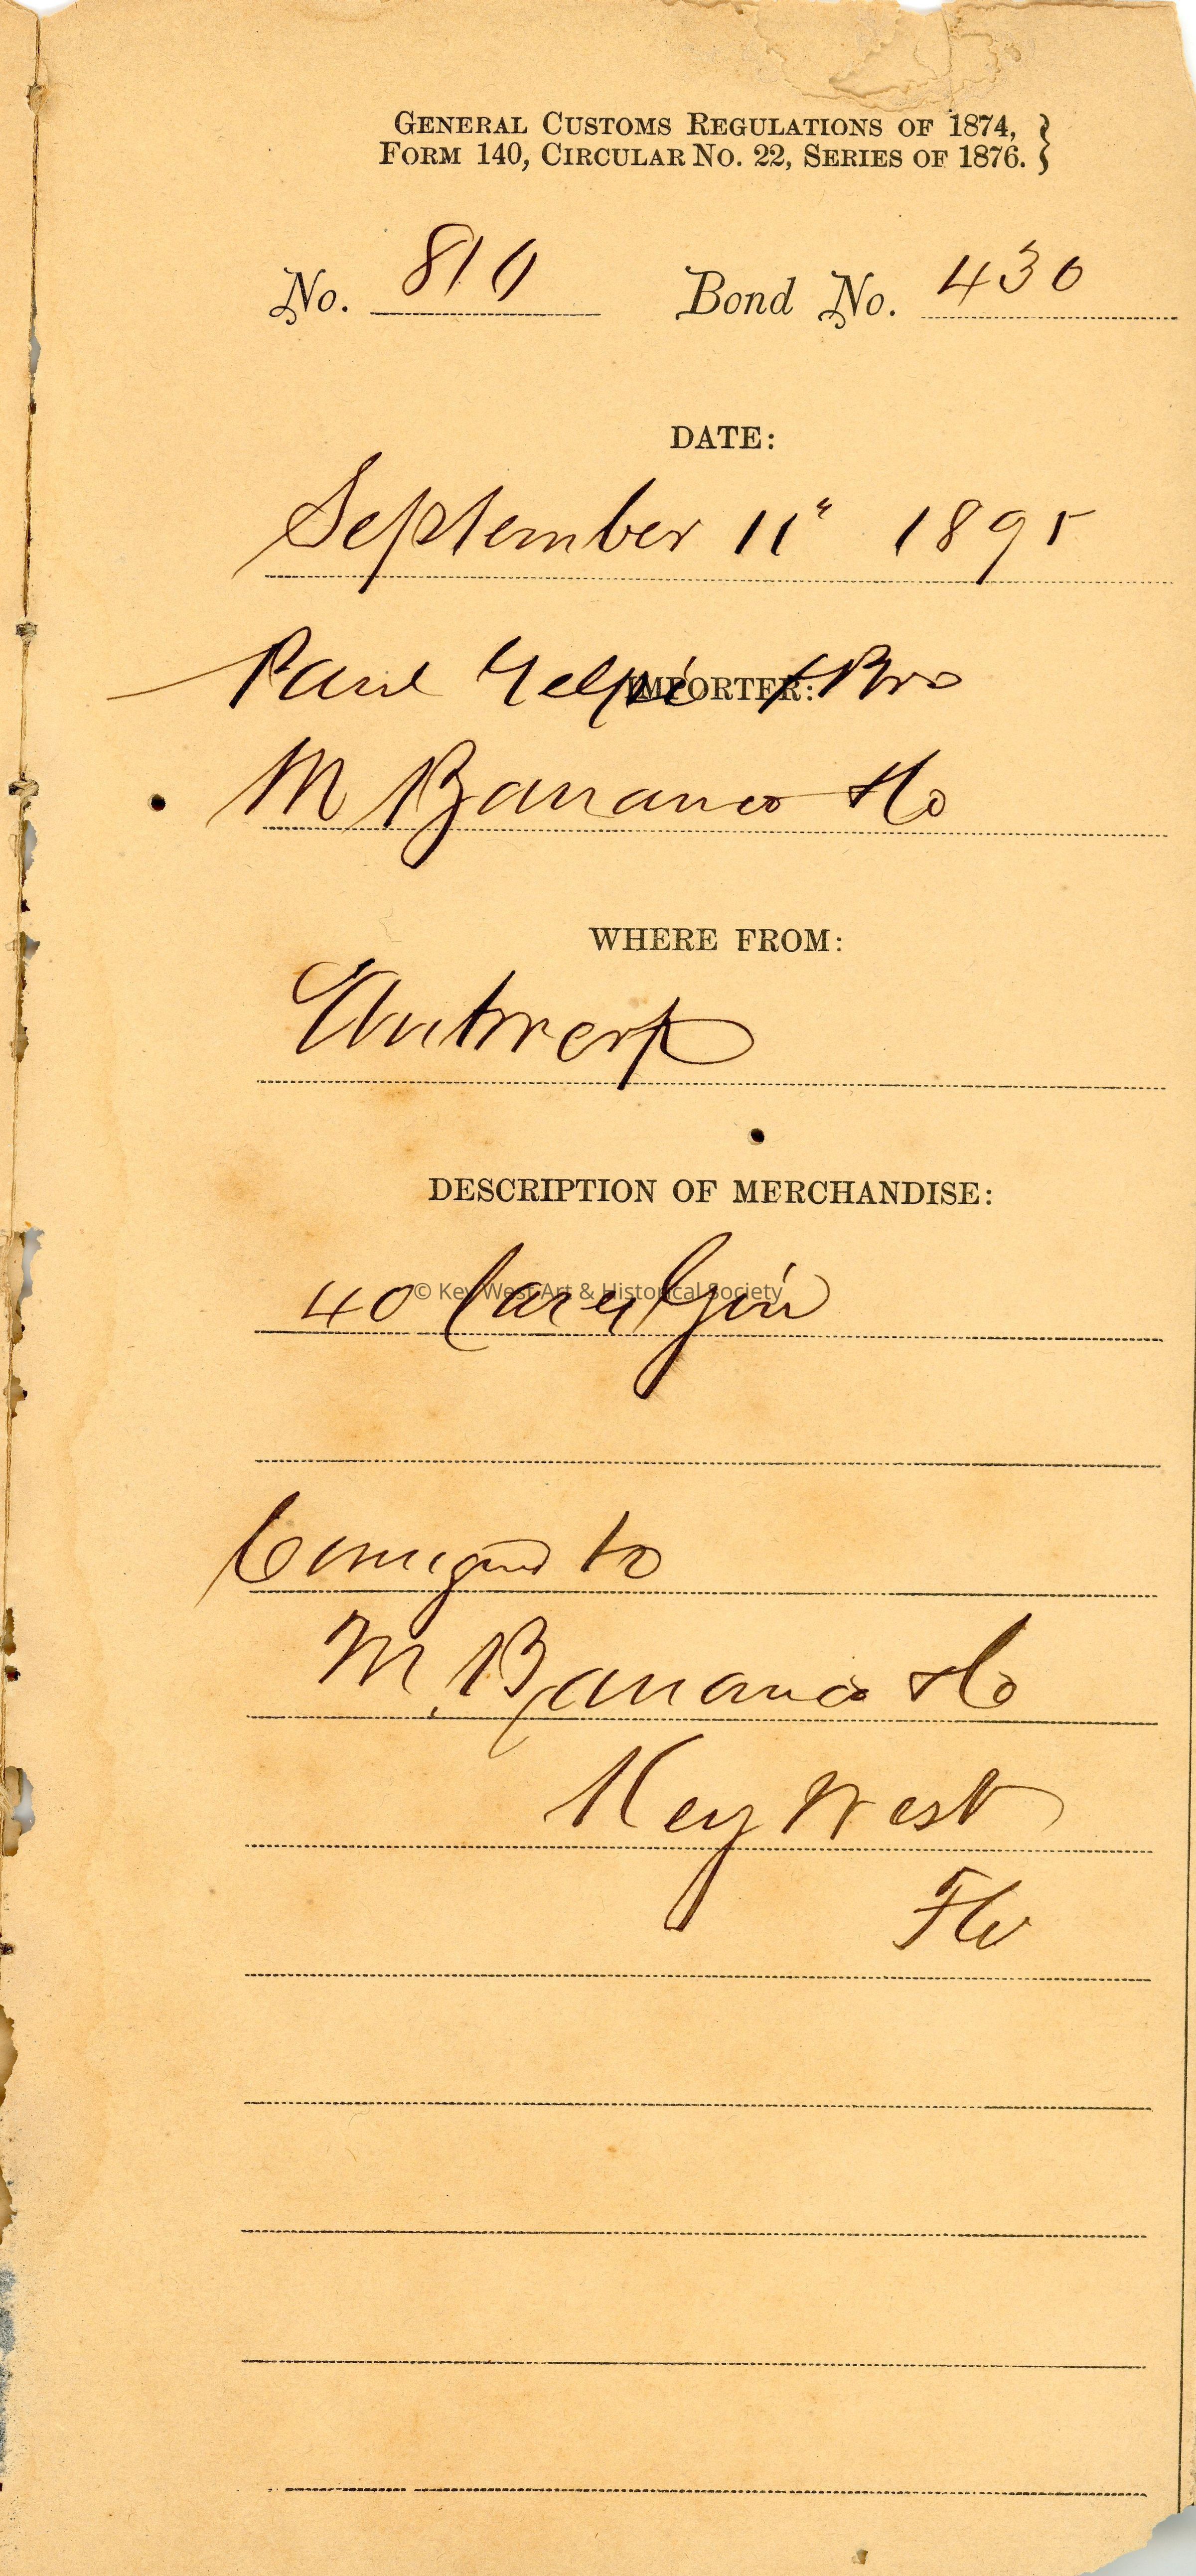 GENERAL CUSTOMS REGULATIONS OF 1874, }
FORM 140, CIRCULAR No. 22, SERIES OF 1876. }
No. 810 Bond No. 430
DATE:
September 11" 1895
Paul Gelpi & Bro
IMPORTER:
M Barranco & Co
WHERE FROM:
Antwerp
DESCRIPTION OF MERCHANDISE:
40 Cases Gin
© Key West Art & Historical Society
Consigned to
M. Barranco & Co
Key West
Fla